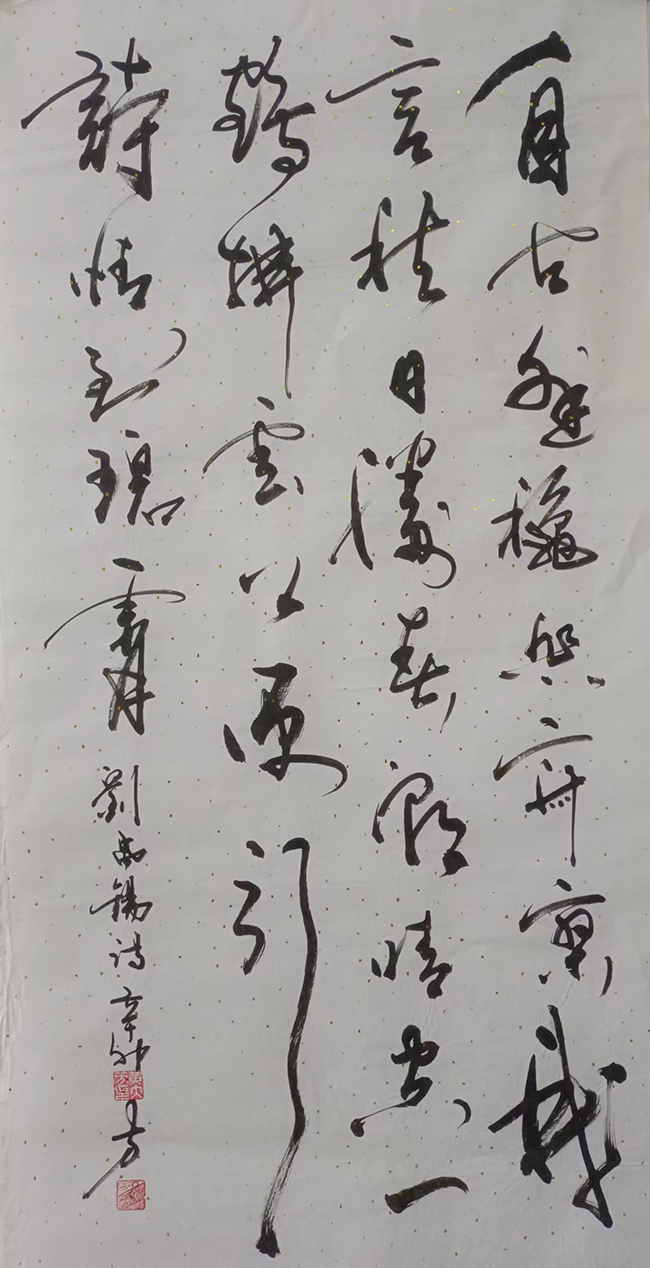 自古逢穐悲寂寥我
言秋日勝春朝晴空一
鶴排雲上便引
詩情到碧霄
劉禹錫诗辛卯方